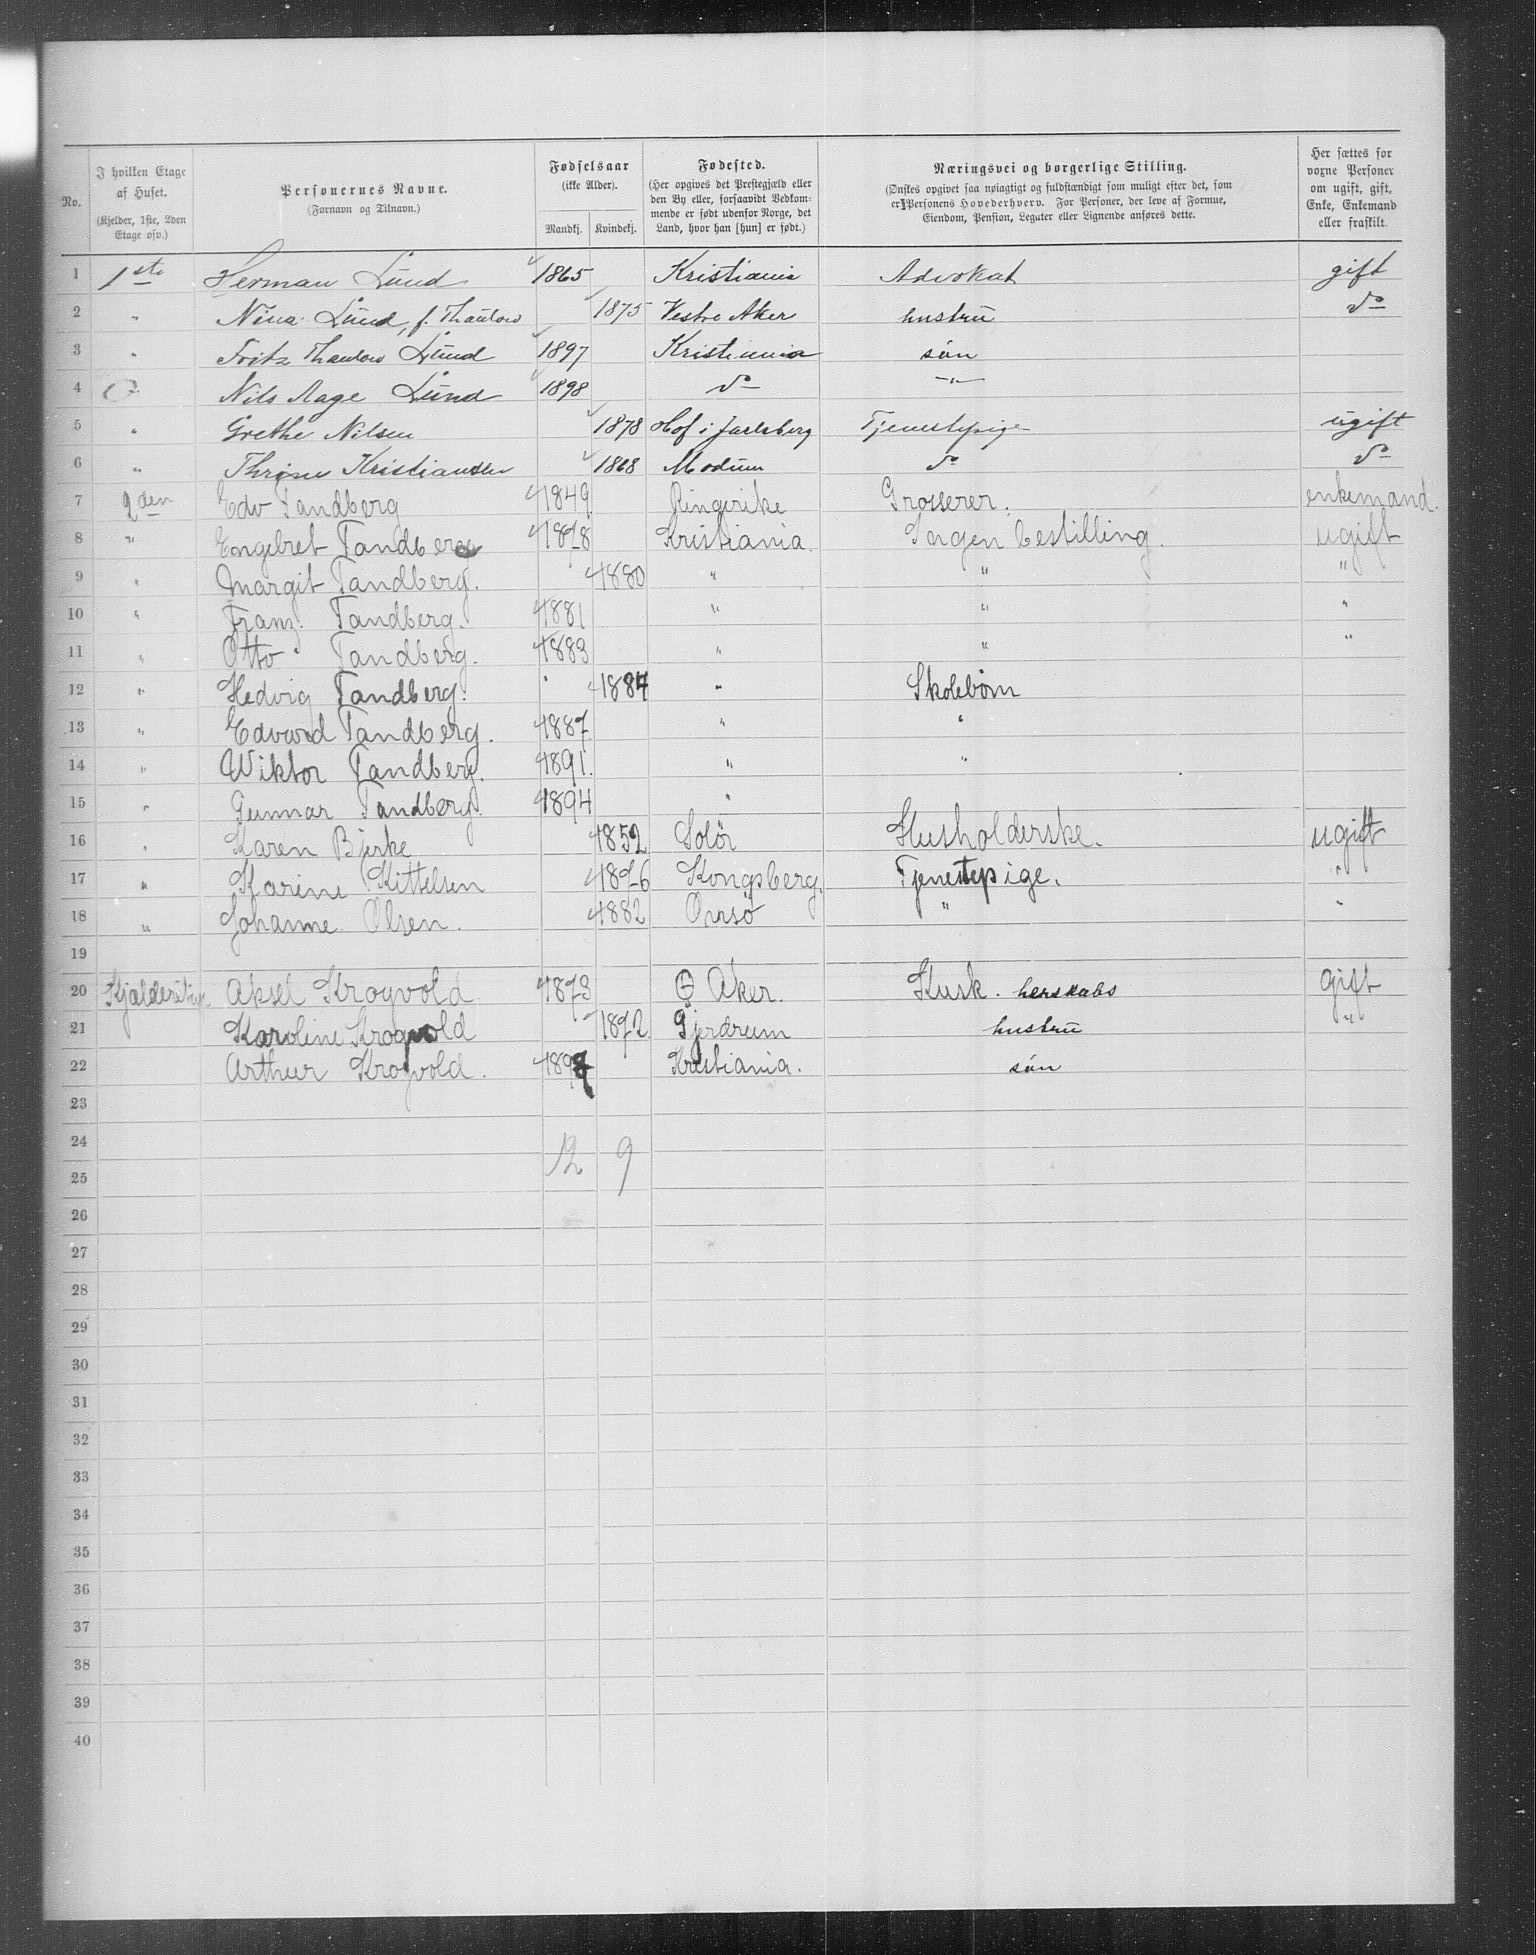 No. | I hvilken Etage af Huset. (Kjelder, 1ste, 2den Etage osv.) | Personernes Navne. (Fornavn og Tilnavn.) | Fødselsaar (ikke Alder). Mandkj. | Kvindekj. | Fødested. (Her opgives det Prestegjæld eller den By eller, forsaavidt Vedkommende er født udenfor Norge, det Land, hvor han [hun] er født.) | Næringsvei og borgerlige Stilling. (Ønskes opgivet saa nøiagtigt og fuldstændigt som muligt efter det, som er Personens Hovederhverv. For Personer, der leve af Formue, Eiendom, Pension, Legater eller Lignende anføres dette. | Her sættes for voxne Personer om ugift, gift, Enke, Enkemand eller fraskilt.
1 | 1ste | Herman Lund | 1865 | | Kristiania | Advokat | gift
2 | " | Nina Lund, f. Thaulow | | 1875 | Vestre Aker | hustru | do
3 | " | Fritz Thaulow Lund | 1897 | | Kristiania | søn
4 | " | Nils Aage Lund | 1898 | | do | -"-
5 | " | Grethe Nilsen | | 1878 | Hof i Jarlsberg | Tjenestepige | ugift
6 | " | Thrine Kristiansen | | 1868 | Modum | do | do
7 | 2den | Edv Tandberg | 1849 | | Ringerike | Grosserer. | enkemand.
8 | " | Engebret Tandberg | 1878 | | Kristiania. | Ingen bestilling. | ugift
9 | " | Margit Tandberg. | | 1880 | " | " | "
10 | " | Franz Tandberg. | 1881 | | " | " | "
11 | " | Otto Tandberg. | 1883 | | " | " | "
12 | " | Hedvig Tandberg. | " | 1884 | " | Skolebørn
13 | " | Edvard Tandberg. | 1887. | | " | "
14 | " | Wiktor Tandberg. | 1891. | | " | "
15 | " | Gunnar Tandberg. | 1894 | | "
16 | " | Karen Bjerke | | 1852 | Solör | Husholderske. | ugift
17 | " | Karine Kittelsen | | 1876 | Kongsberg. | Tjenestepige. | "
18 | " | Johanne Olsen. | | 1882 | Onsø | " | "
19
20 | Kjælderetage | Aksel Krogvold | 1873 | | Ø Aker. | Kusk. herskabs | gift
21 | | Karoline Krogvold | | 1872. | Gjerdrum | hustru | "
22 | | Arthur Krogvold. | 1897 | | Kristiania. | søn
23
24 | | | 12 | 9
25
26
27
28
29
30
31
32
33
34
35
36
37
38
39
40